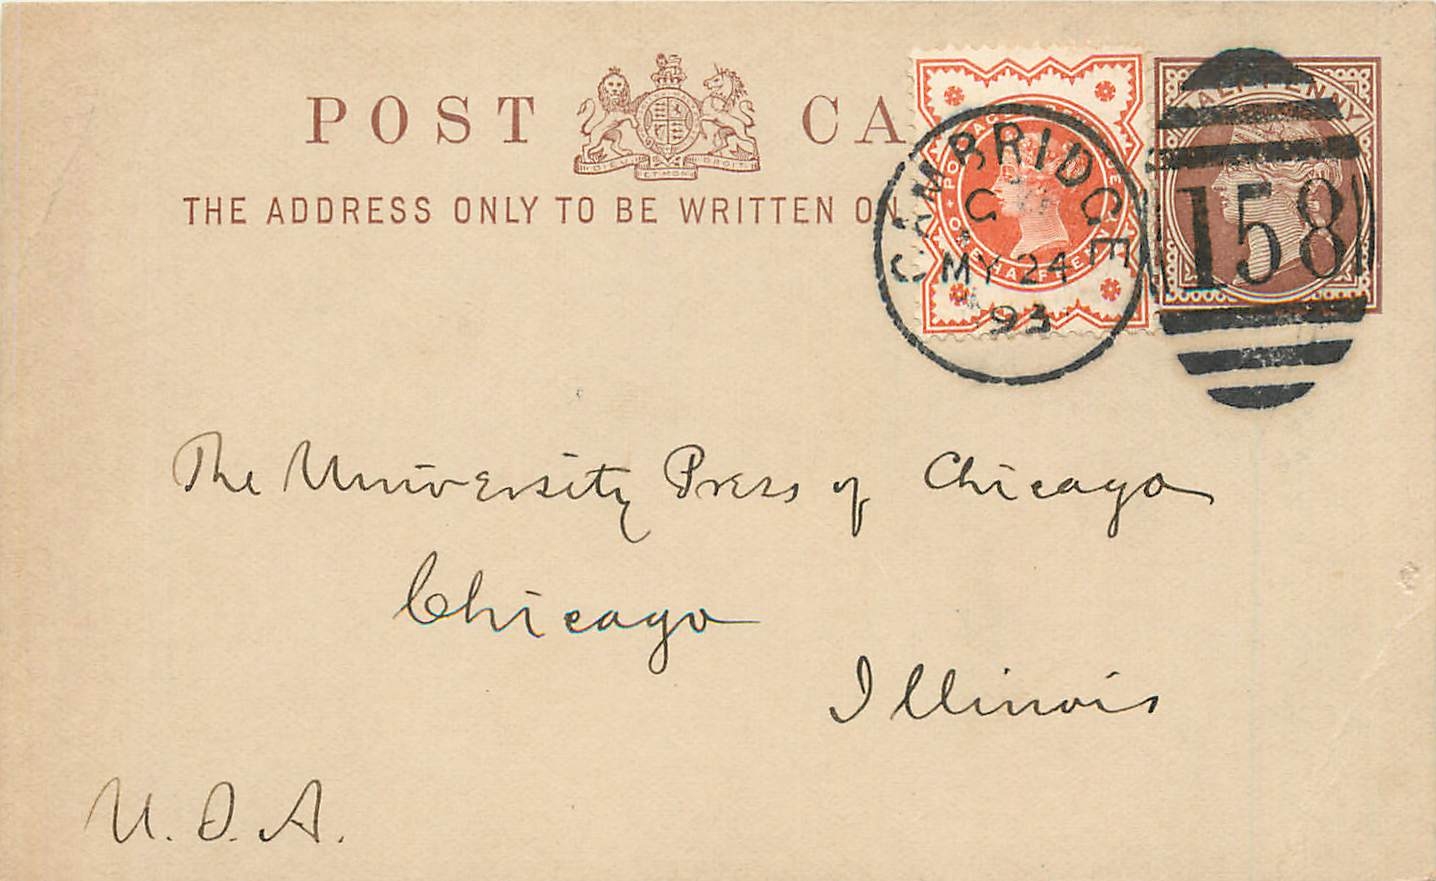 POST CA
DIEU ET MON DROIT
THE ADDRESS ONLY TO BE WRITTEN ON
POSTAGE
ONE HALFPENNY
HALFPENNY
CAMBRIDGE
C
MY 24
93
158
The University Press of Chicago
Chicago
Illinois
U.S.A.